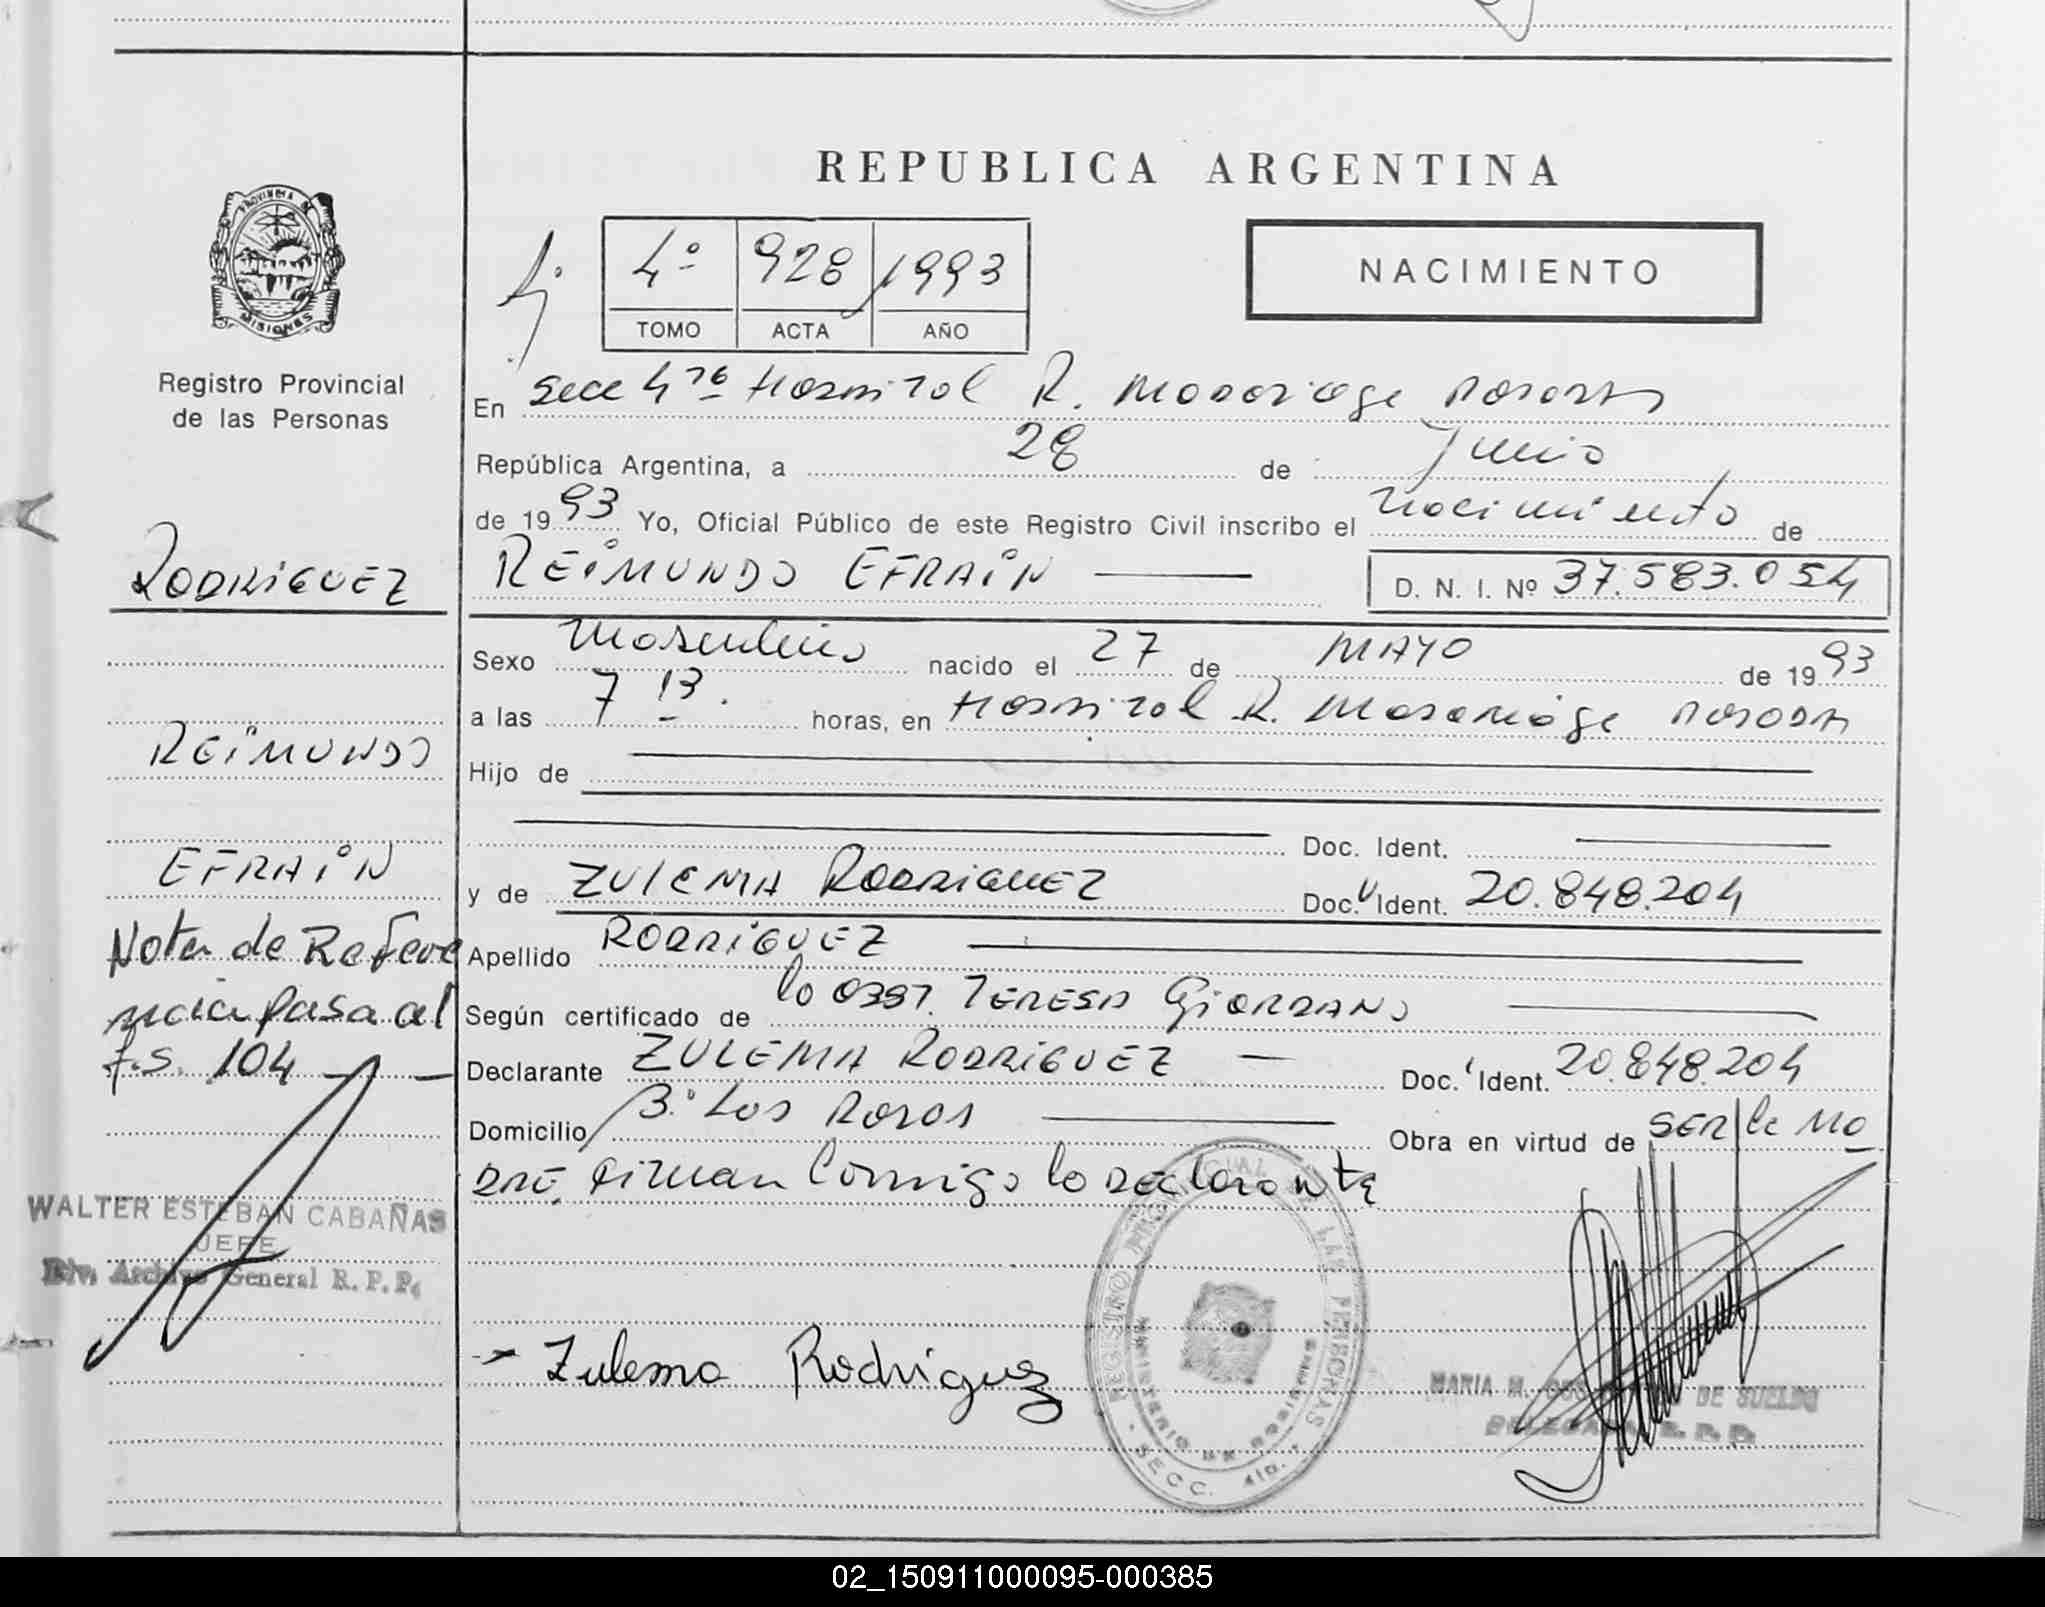 REPUBLICA ARGENTINA
PROVINCIA DE
MISIONES
Registro Provincial
de las Personas
4º 928 1993
TOMO ACTA AÑO
NACIMIENTO
En Secc 4ta Hospital R. Madariaga Posadas
República Argentina, a 28 de Junio
de 1993 Yo, Oficial Público de este Registro Civil inscribo el nacimiento de
REIMUNDO EFRAIN D. N. I. Nº 37.583.054
Sexo Masculino nacido el 27 de MAYO de 1993
a las 7 13. horas, en Hospital R. Madariaga Posadas
Hijo de
Doc. Ident.
y de ZULEMA RODRIGUEZ Doc. Ident. 20.848.204
Apellido RODRIGUEZ
Según certificado de la obst. TERESA GIORDANO
Declarante ZULEMA RODRIGUEZ Doc. Ident. 20.848.204
Domicilio Bº Los Rosas Obra en virtud de SER la MA
DRE. Firman Conmigo la Declarante
Zulema Rodriguez
REGISTRO PROVINCIAL DE LAS PERSONAS
MINISTERIO DE GOBIERNO
SECC. 4ta.
MARIA M. DE SUELDO
DELEGADA R. P. P.
RODRIGUEZ
REIMUNDO
EFRAIN
Nota de Refere
ncia pasa al
f.s. 104
WALTER ESTEBAN CABAÑAS
JEFE
Div. Archivo General R. P. P.
02_150911000095-000385